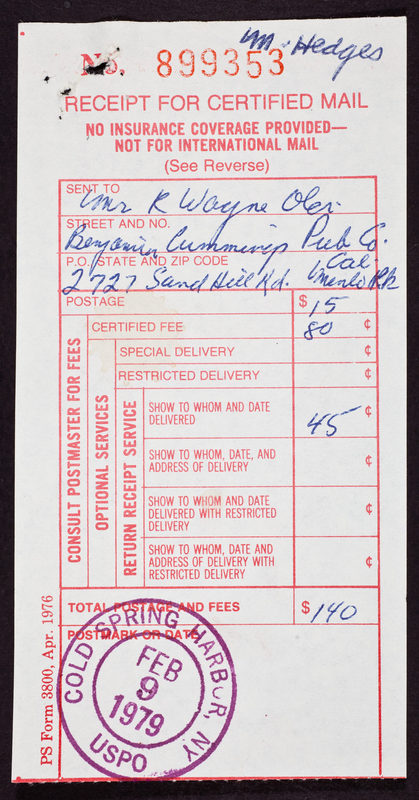 No. 899353
M. Hedges
RECEIPT FOR CERTIFIED MAIL
NO INSURANCE COVERAGE PROVIDED—
NOT FOR INTERNATIONAL MAIL
(See Reverse)
SENT TO
Mr R Wayne Oler
STREET AND NO.
Benjamin Cummings Pub Co.
P.O., STATE AND ZIP CODE
Cal.
2727 Sand Hill Rd. Menlo Pk
POSTAGE $ 15
CERTIFIED FEE 80 ¢
SPECIAL DELIVERY ¢
RESTRICTED DELIVERY ¢
SHOW TO WHOM AND DATE
DELIVERED 45 ¢
SHOW TO WHOM, DATE, AND
ADDRESS OF DELIVERY ¢
SHOW TO WHOM AND DATE
DELIVERED WITH RESTRICTED
DELIVERY ¢
SHOW TO WHOM, DATE AND
ADDRESS OF DELIVERY WITH
RESTRICTED DELIVERY ¢
CONSULT POSTMASTER FOR FEES
OPTIONAL SERVICES
RETURN RECEIPT SERVICE
TOTAL POSTAGE AND FEES $ 140
POSTMARK OR DATE
COLD SPRING HARBOR, NY
FEB
9
1979
USPO
PS Form 3800, Apr. 1976